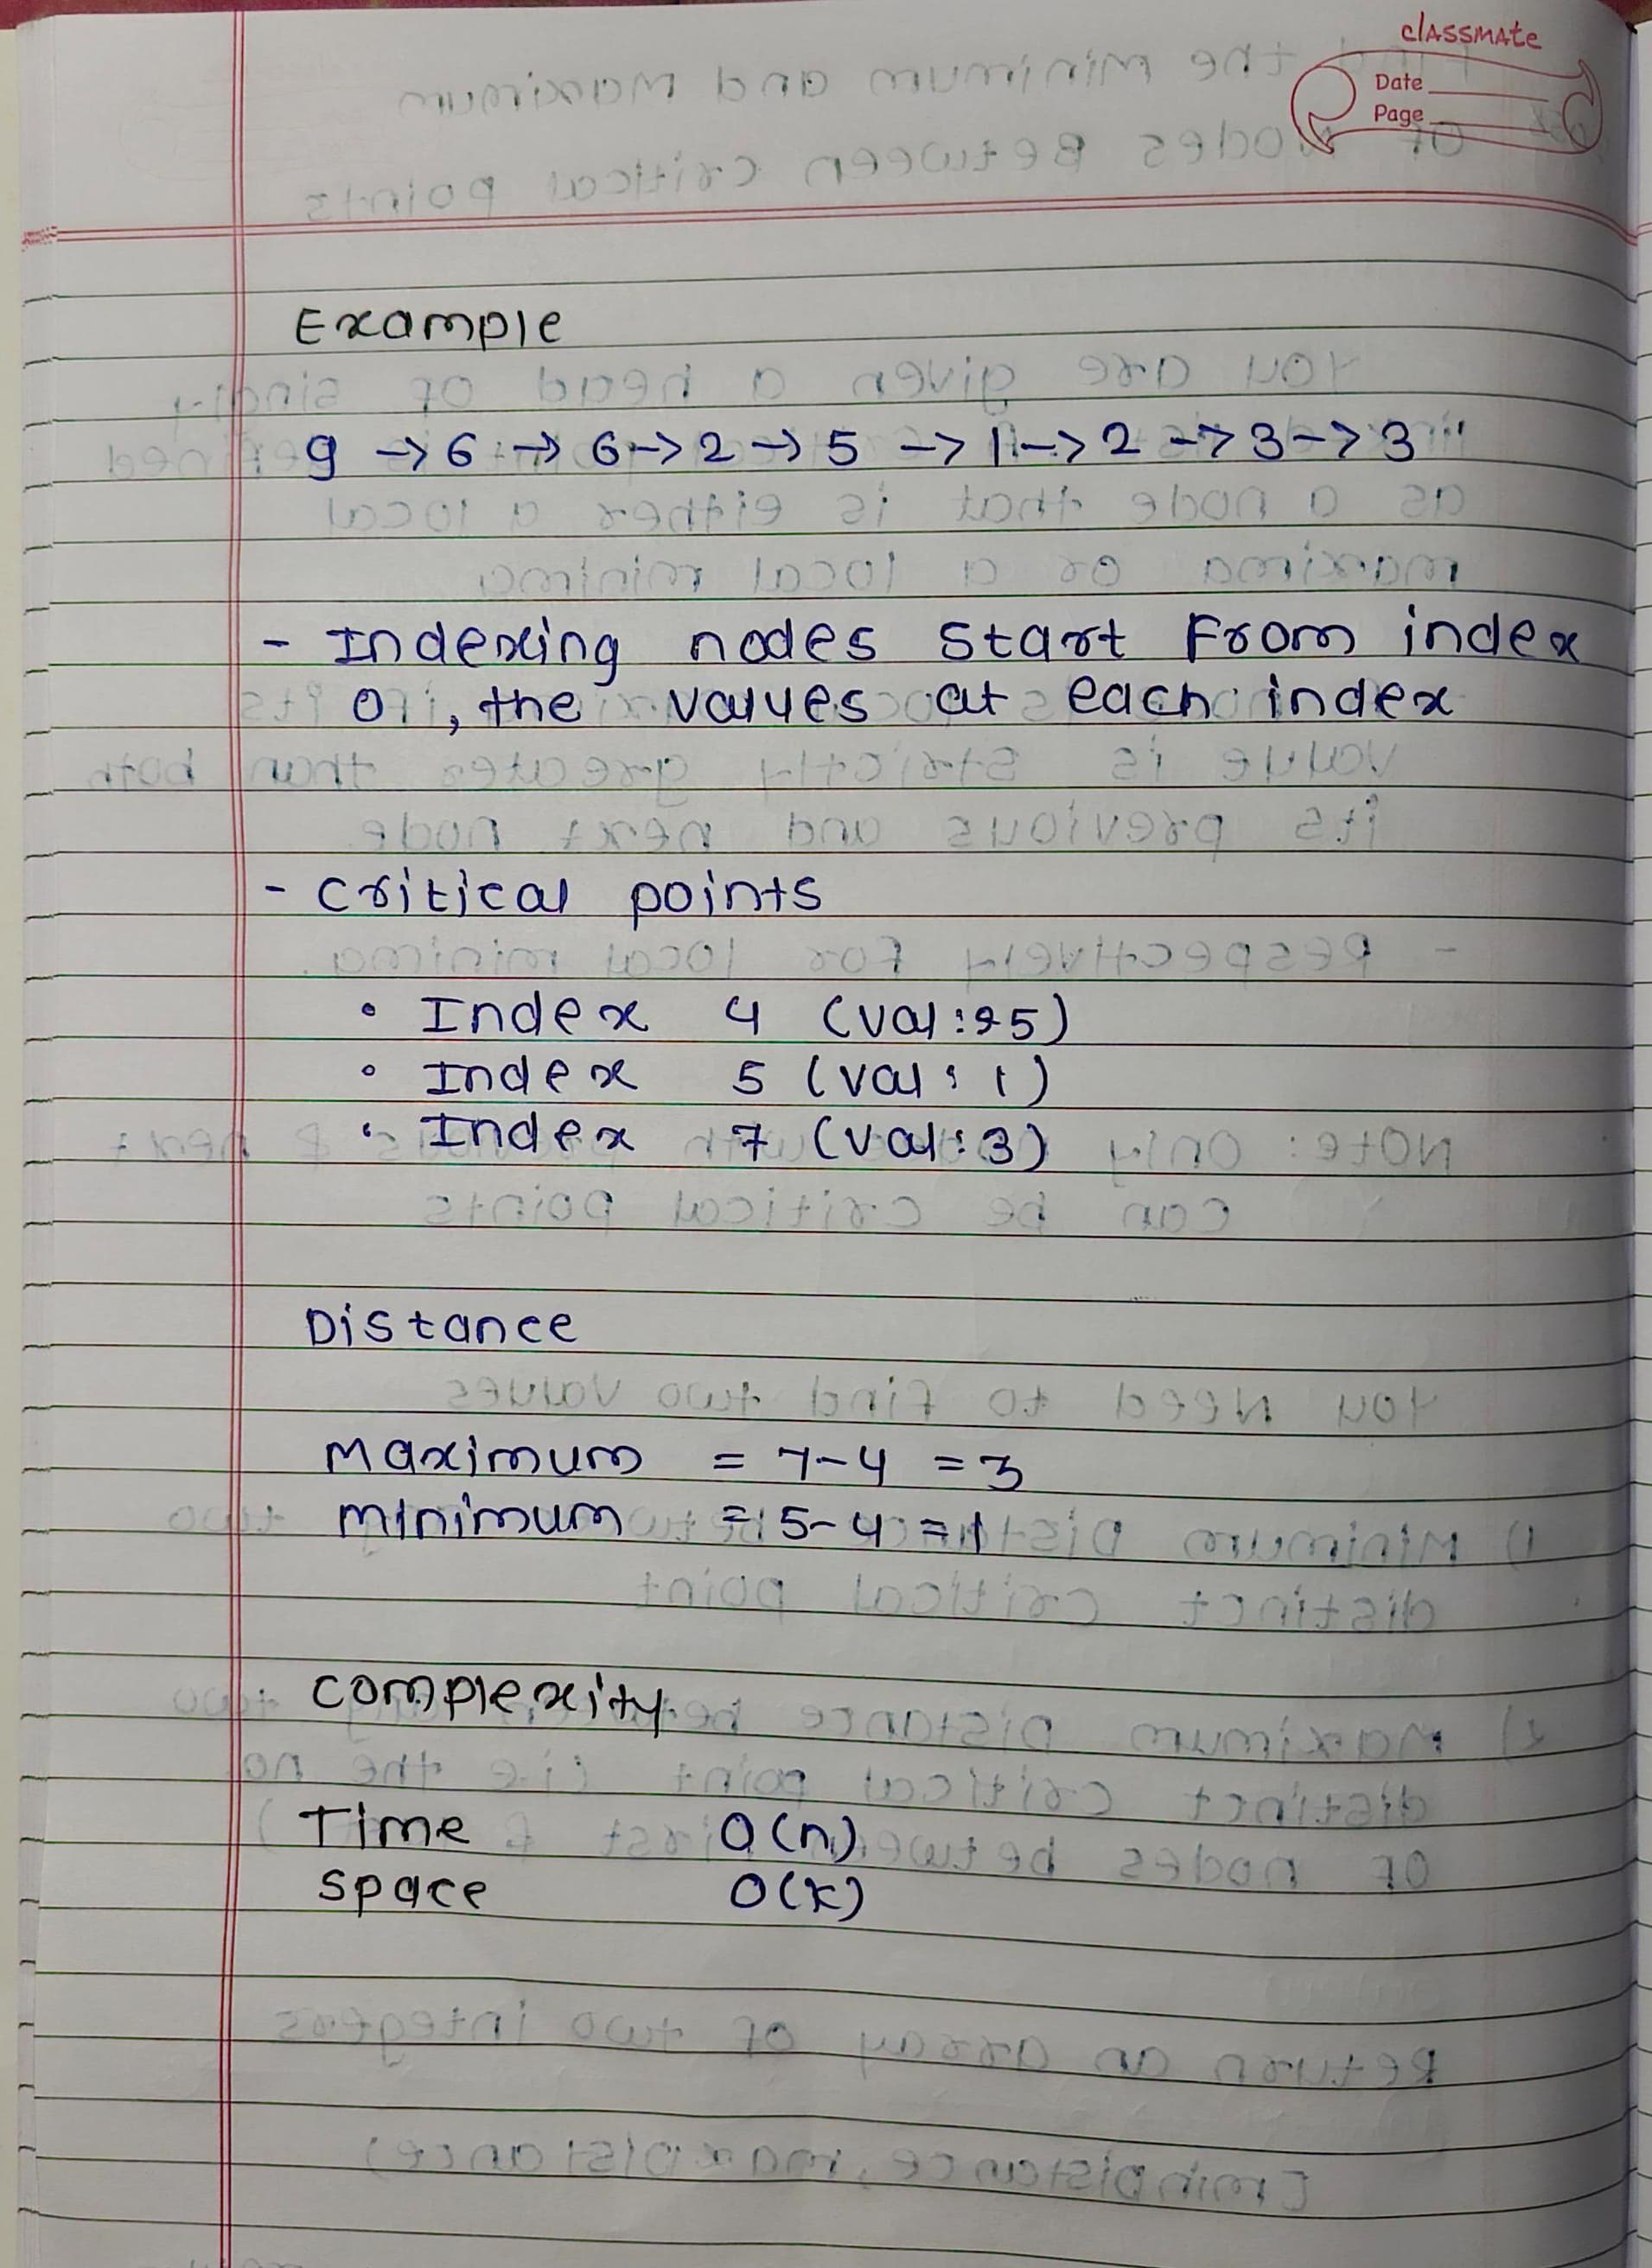 classmate
Date
Page
Example
9 -> 6 -> 6 -> 2 -> 5 -> 1 -> 2 -> 3 -> 3
- Indexing nodes start From index
0, the values at each index
- critical points
• Index 4 (val: 5)
• Index 5 (val: 1)
• Index 7 (val: 3)
Distance
maximum = 7-4 = 3
minimum = 5-4 = 1
complexity
Time O(n)
space O(k)